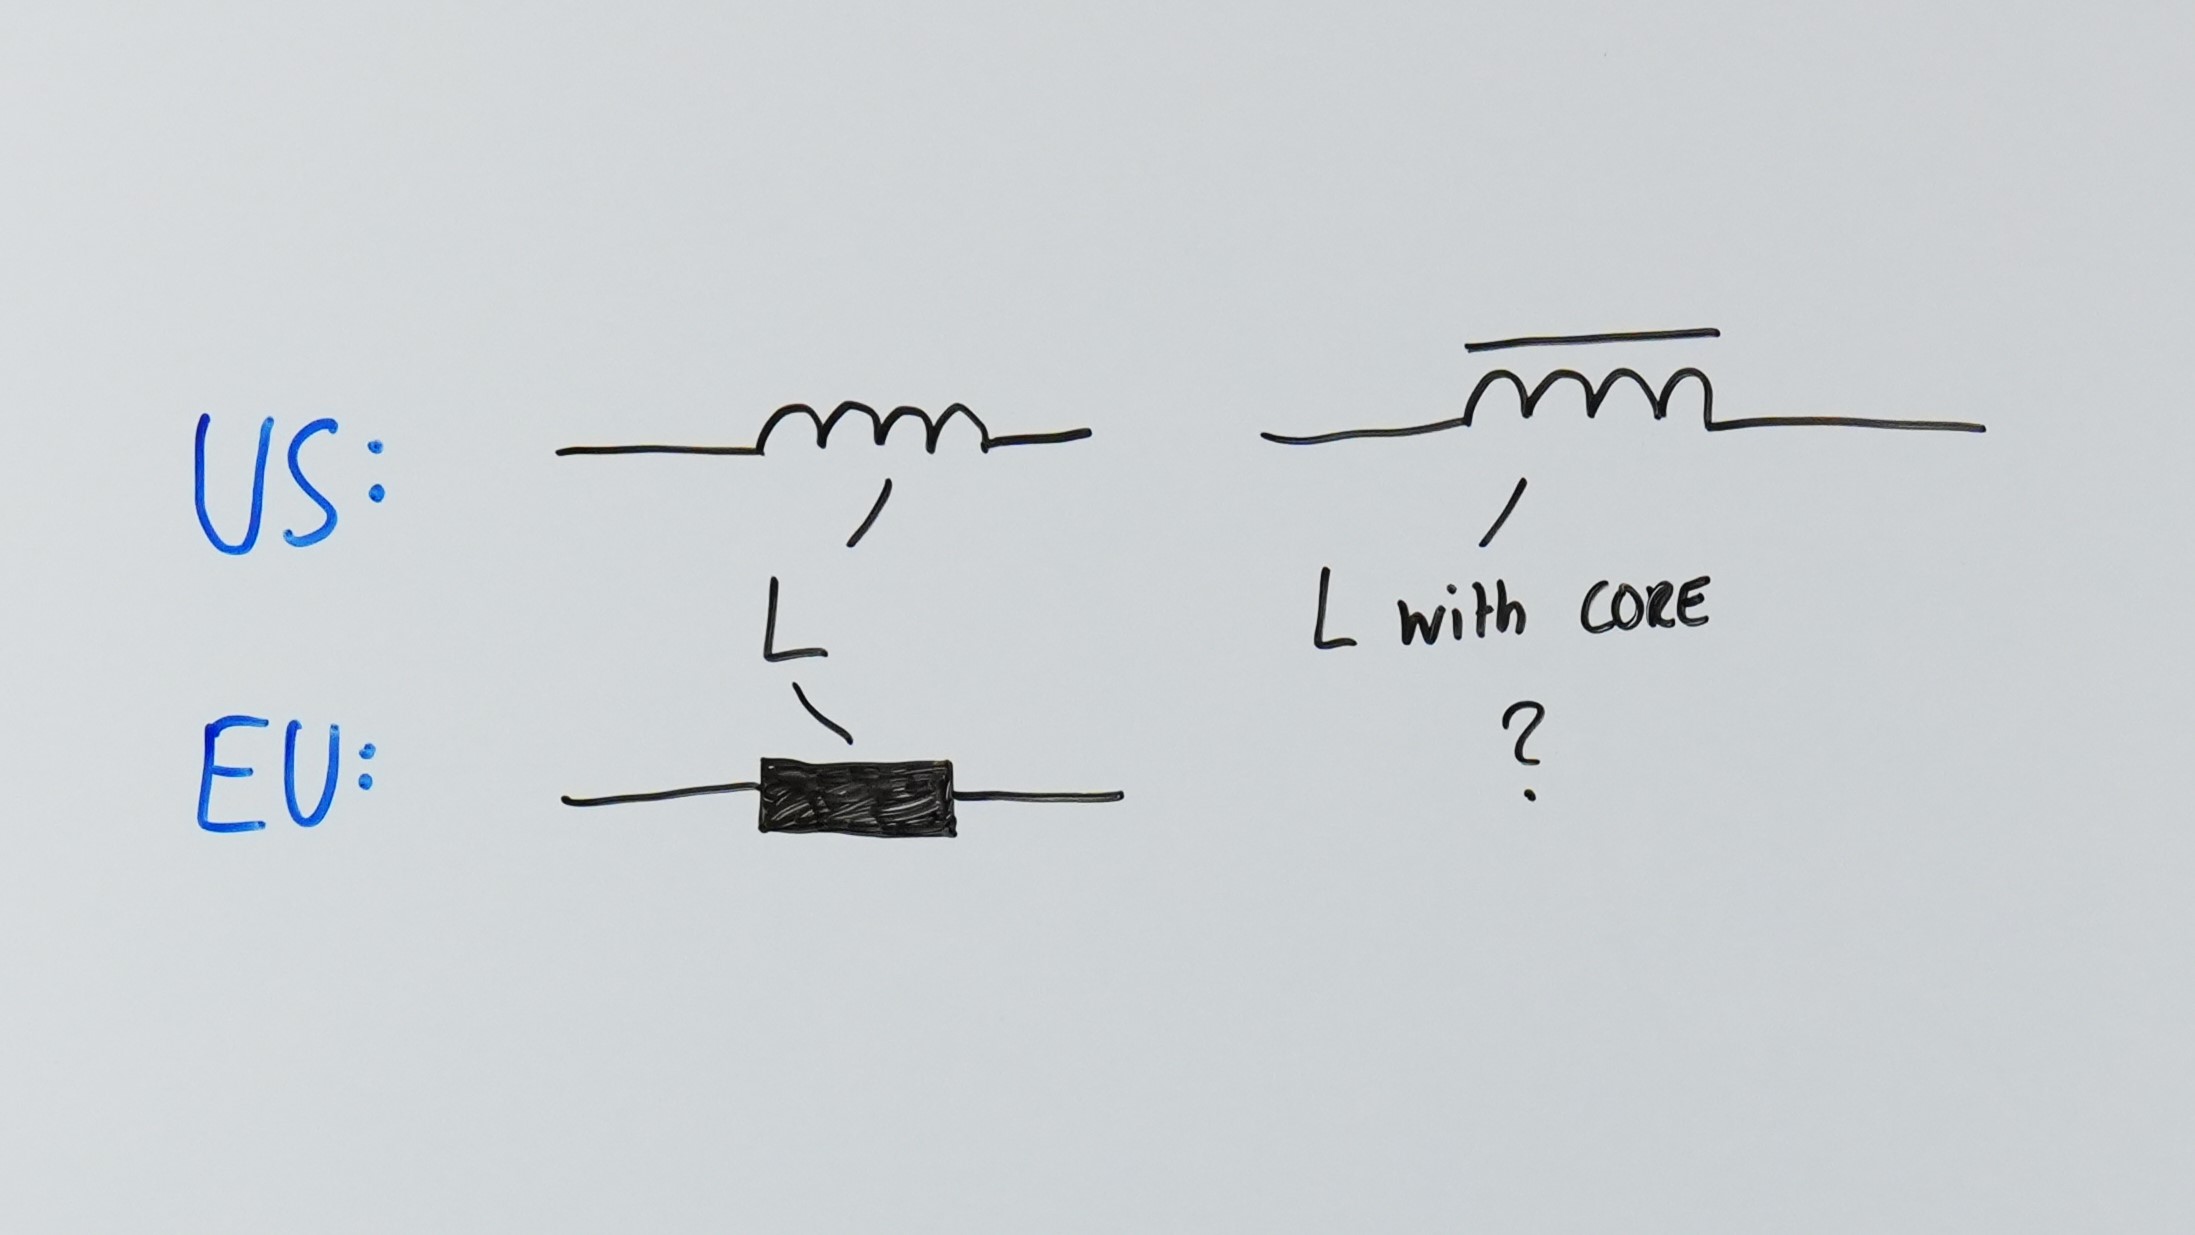 US:
L
L with CORE
?
EU: